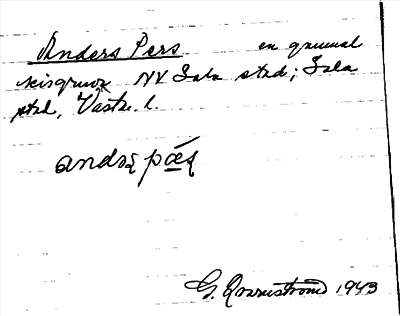 Anders Pers en gammal
NV Sala stad; Sala
stad, Västm. l.
andəʂ pæʂ
G. Kvarnström 1943